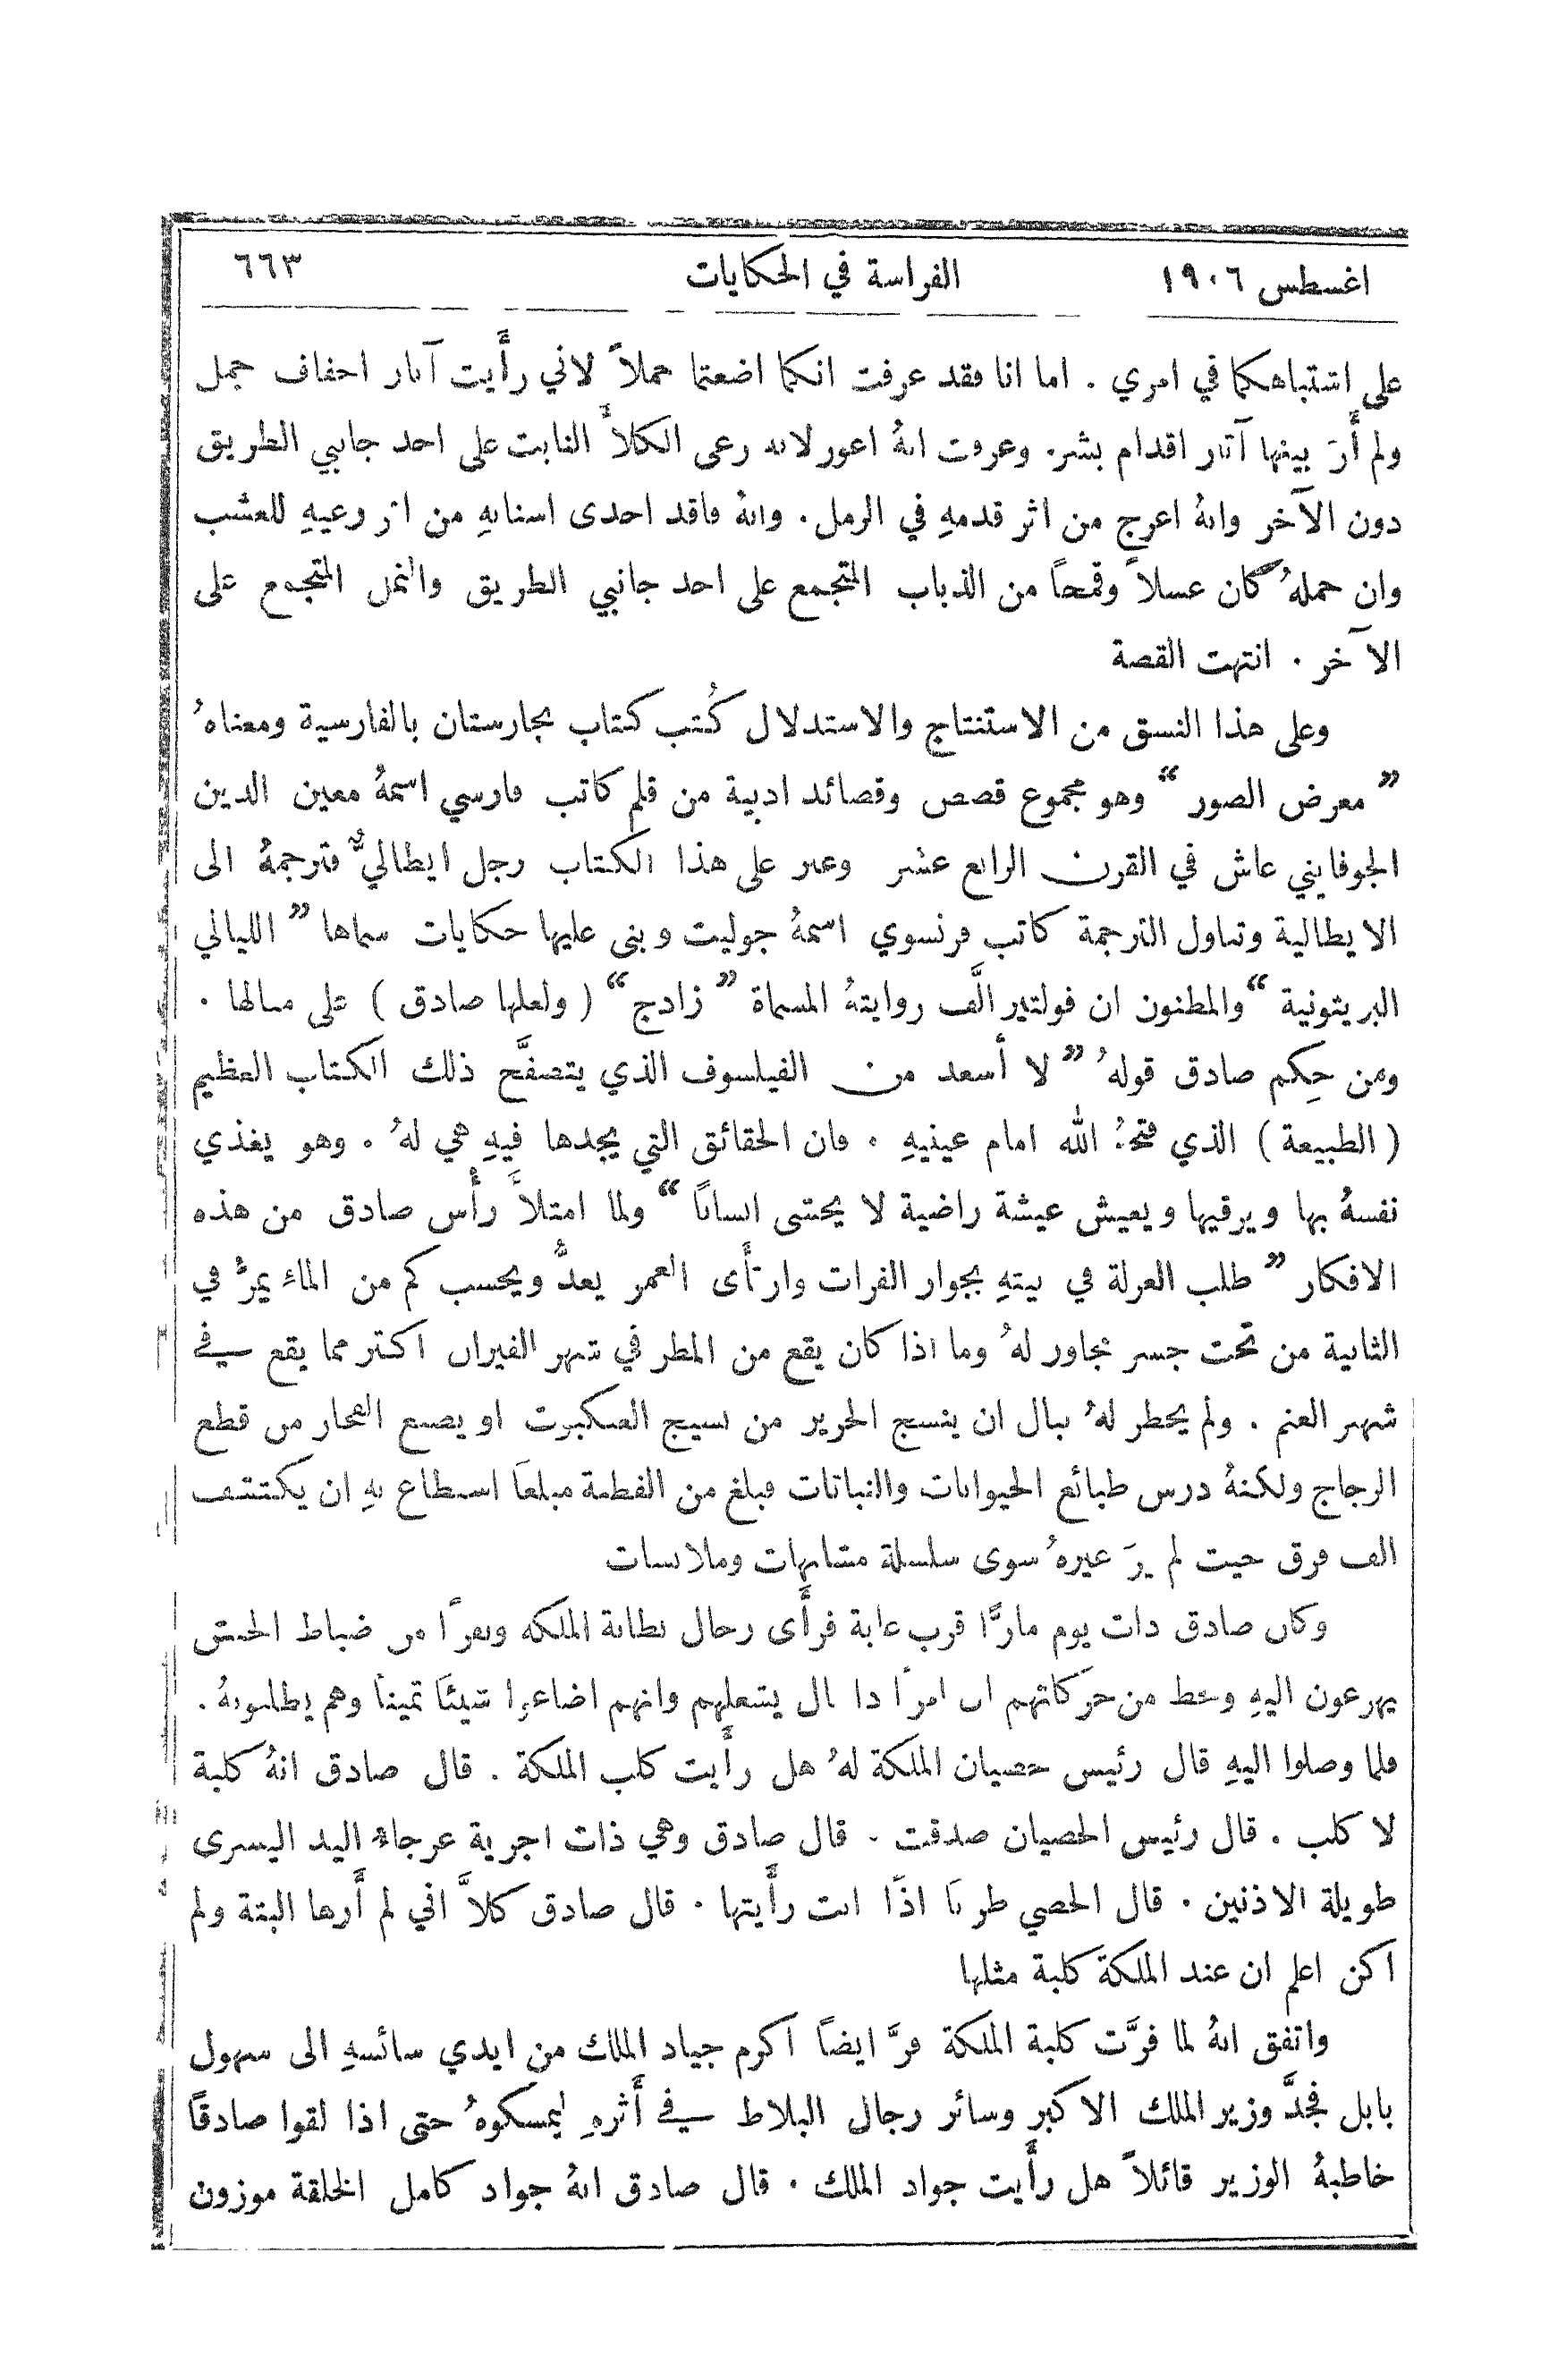 اغسطس ١٩٠٦ الفراسة في الحكايات ٦٦٣
على اشتباهكما في امري . اما انا فقد عرفت انكما اضعتما جملاً لاني رأَيت آثار اخفاف جمل
ولم أَرَ بينها آثار اقدام بشر. وعرفت انهُ اعور لانه رعى الكلأَ النابت على احد جانبي الطريق
دون الآخر وانهُ اعرج من اثر قدمهِ في الرمل . وانهُ فاقد احدى اسنانهِ من اثر رعيهِ للعشب
وان حملهُ كان عسلاً وقمحاً من الذباب المتجمع على احد جانبي الطريق والنمل المتجمع على
الآخر . انتهت القصة
وعلى هذا النسق من الاستنتاج والاستدلال كُتب كتاب نجارستان بالفارسية ومعناهُ
” معرض الصور “ وهو مجموع قصص وقصائد ادبية من قلم كاتب فارسي اسمهُ معين الدين
الجوفايني عاش في القرن الرابع عشر وعثر على هذا الكتاب رجل ايطاليٌّ فترجمهُ الى
الايطالية وتناول الترجمة كاتب فرنسوي اسمهُ جوليت وبنى عليها حكايات سماها ” الليالي
البريتونية “ والمظنون ان فولتير الَّف روايتهُ المسماة ” زادج “ ( ولعلها صادق ) على مثالها .
ومن حِكم صادق قولهُ ” لا أسعد من الفيلسوف الذي يتصفَّح ذلك الكتاب العظيم
( الطبيعة ) الذي فتحهُ الله امام عينيهِ . فان الحقائق التي يجدها فيهِ هي لهُ . وهو يغذي
نفسهُ بها ويرقيها ويعيش عيشة راضية لا يخشى انساناً “ ولما امتلأَ رأْس صادق من هذه
الافكار ” طلب العزلة في بيتهِ بجوار الفرات وارتأَى العمر يعدُّ ويحسب كم من الماء يمرُّ في
الثانية من تحت جسر مجاور لهُ وما اذا كان يقع من المطر في شهر الفيران اكثر مما يقع في
شهر الغنم . ولم يخطر لهُ ببال ان ينسج الحرير من نسيج العنكبوت او يصنع الفخار من قطع
الزجاج ولكنهُ درس طبائع الحيوانات والنباتات فبلغ من الفطنة مبلغاً استطاع بهِ ان يكتشف
الف فرق حيث لم يرَ غيرهُ سوى سلسلة مشابهات وملابسات
وكان صادق ذات يوم مارًّا قرب غابة فرأَى رجال بطانة الملكة ونفرًا من ضباط الجيش
يهرعون اليهِ وعظ من حركاتهم ان امرًا ذا بال يشغلهم وانهم اضاعوا شيئاً ثميناً وهم يطلبونهُ .
فلما وصلوا اليهِ قال رئيس خصيان الملكة لهُ هل رأَيت كلب الملكة . قال صادق انهُ كلبة
لا كلب . قال رئيس الخصيان صدقت . قال صادق وهي ذات اجرية عرجاء اليد اليسرى
طويلة الاذنين . قال الخصي طربًا اذًا انت رأَيتها . قال صادق كلاَّ اني لم أَرها البتة ولم
اكن اعلم ان عند الملكة كلبة مثلها
واتفق انهُ لما فرَّت كلبة الملكة فرَّ ايضاً اكرم جياد الملك من ايدي سائسهِ الى سهول
بابل فجدَّ وزير الملك الاكبر وسائر رجال البلاط في أَثرهِ ليمسكوهُ حتى اذا لقوا صادقًا
خاطبهُ الوزير قائلاً هل رأَيت جواد الملك . قال صادق انهُ جواد كامل الخلقة موزون